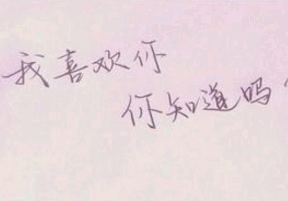 我喜欢你
你知道吗